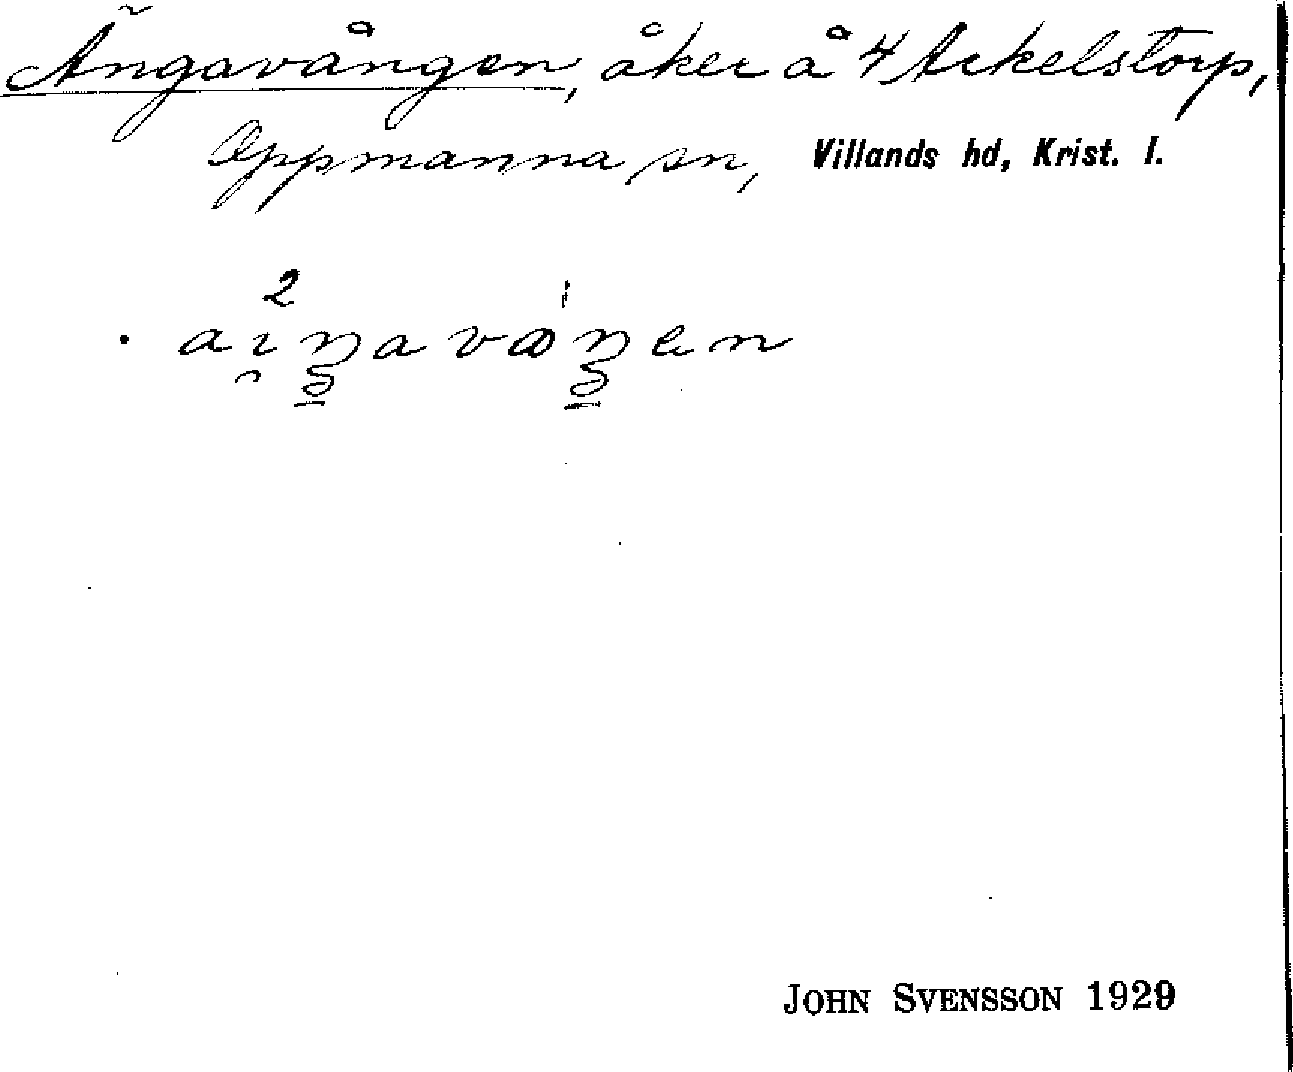 Ängavången, åker å 4 Arkelstorp,
Oppmanna sn, Villands hd, Krist. l.
2 ı
· aıŋavaŋen
JOHN SVENSSON 1929